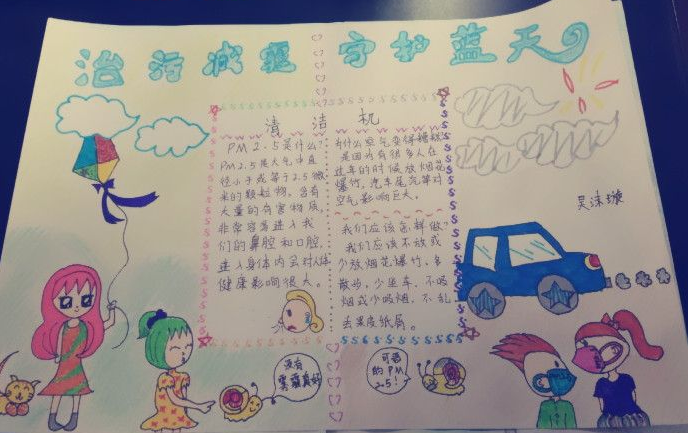 治污减霾 守护蓝天
清洁机
PM2.5是什么?
PM2.5是大气中直
径小于或等于2.5微
米的颗粒物,含有
大量的有害物质,
非常容易进入我
们的鼻腔和口腔,
进入身体内会对人体
健康影响很大。
为什么空气变得糟糕?
是因为有很多人在
过年的时候放烟花
爆竹,汽车尾气等对
空气影响巨大。
我们应该怎样做?
我们应该不放或
少放烟花爆竹,多
散步,少坐车,不吸
烟或少吸烟,不乱
丢果皮纸屑。
吴沫璇
没有
雾霾真好
可恶
的PM
2.5!